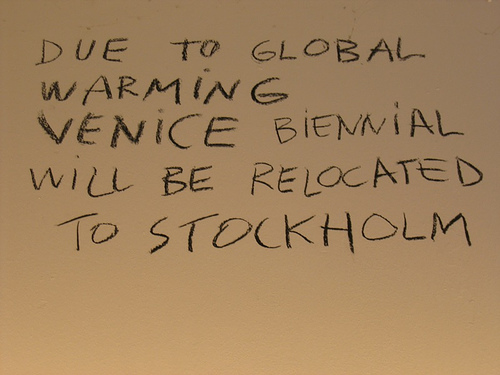 DUE TO GLOBAL
WARMING
VENICE BIENNIAL
WILL BE RELOCATED
TO STOCKHOLM